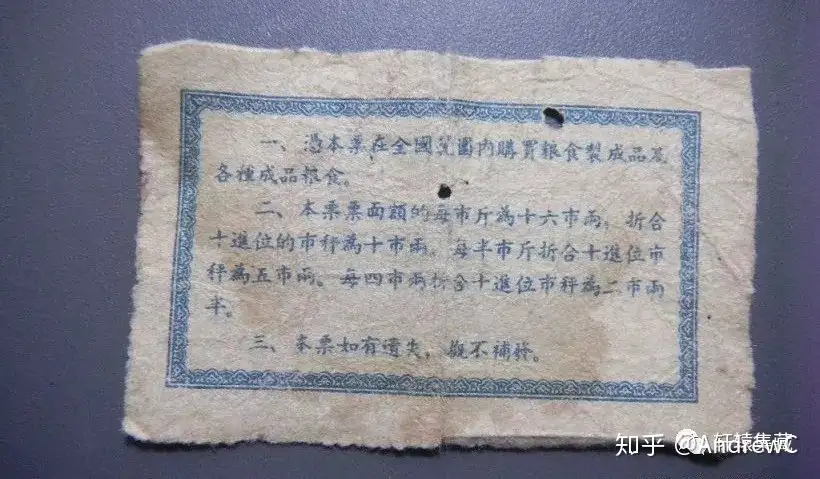 一、憑本票在全國範圍内購買粮食製成品及
各種成品粮食。
二、本票票面額的每市斤為十六市兩，折合
十進位的市秤為十市兩。每半市斤折合十進位市
秤為五市兩。每四市兩折合十進位市秤為二市兩
半。
三、本票如有遺失，概不補發。
知乎 @AndrewC
轩辕集藏